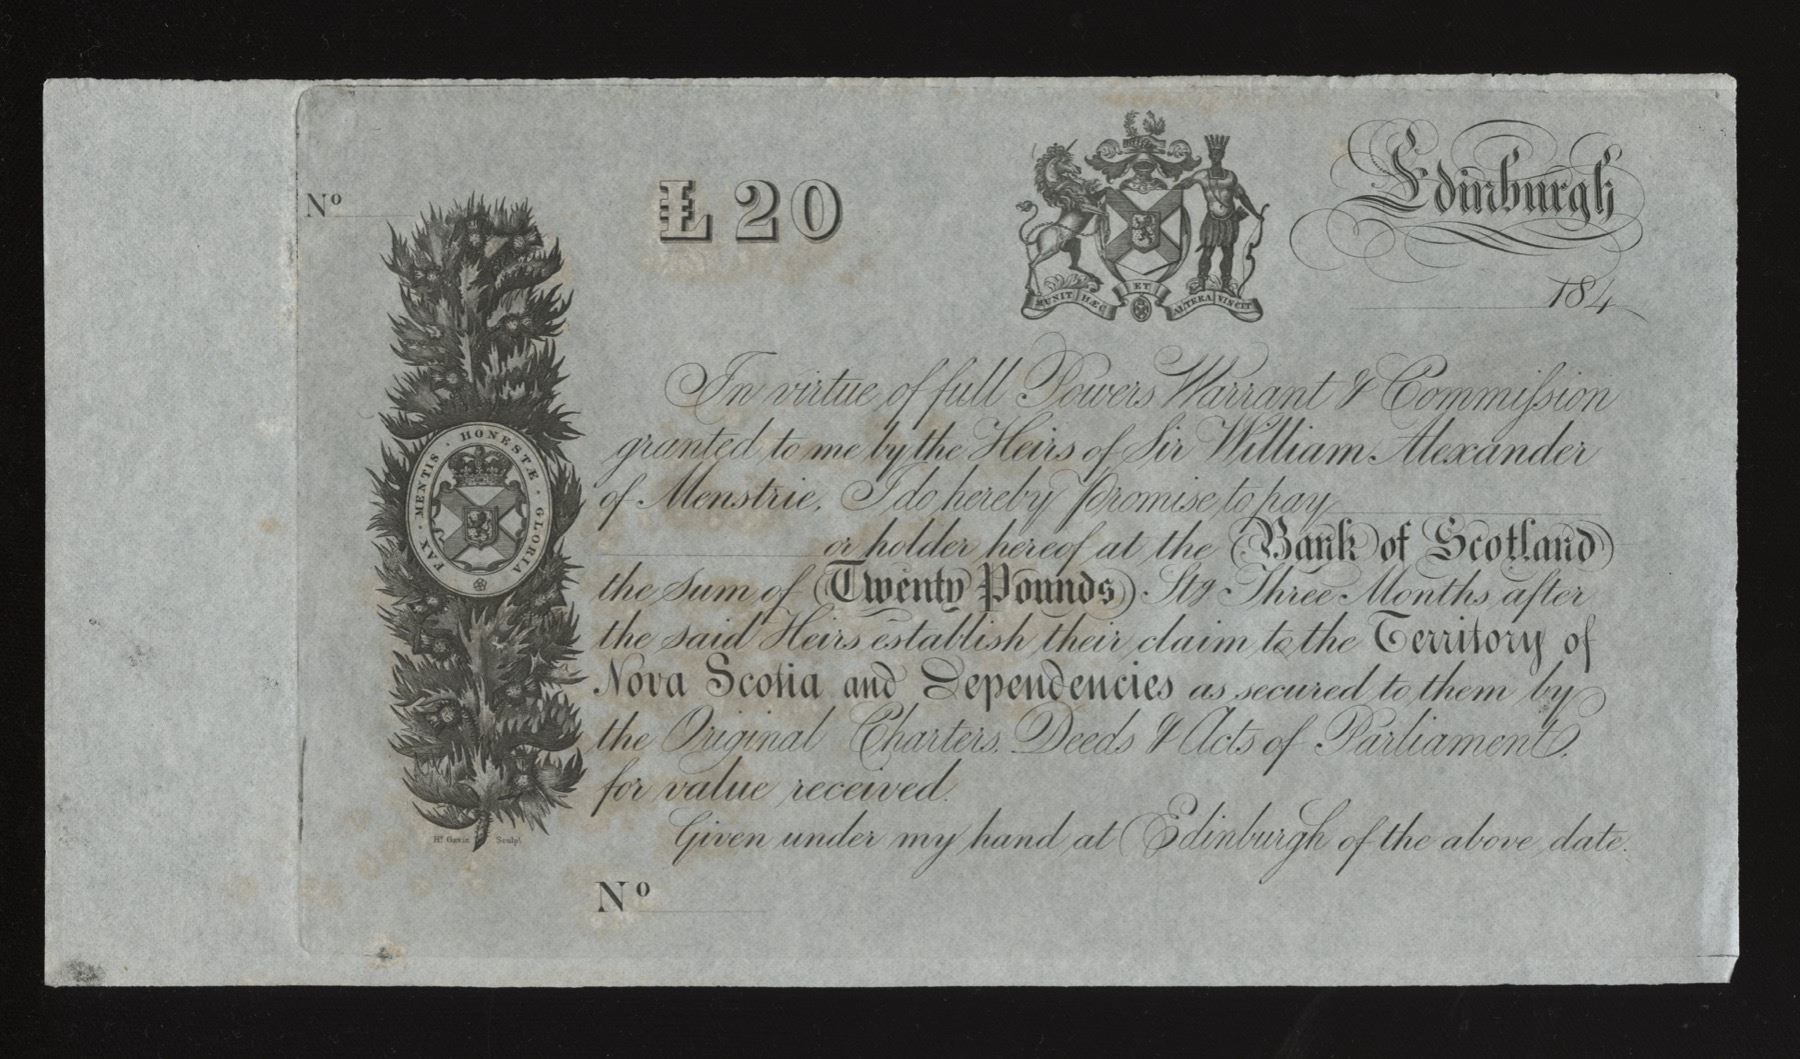 Nº
£20
MUNIT HÆC ET ALTERA VINCIT
Edinburgh
184
In virtue of full Powers Warrant & Commission
granted to me by the Heirs of Sir William Alexander
of Menstrie, I do hereby promise to pay
or holder hereof at the Bank of Scotland
the sum of Twenty Pounds Stg Three Months after
the said Heirs establish their claim to the Territory of
Nova Scotia and Dependencies as secured to them by
the Original Charters, Deeds & Acts of Parliament,
for value received.
Given under my hand at Edinburgh of the above date.
Nº
FAX · MENTIS · HONESTÆ · GLORIA
Hr. Gavin Sculpt.